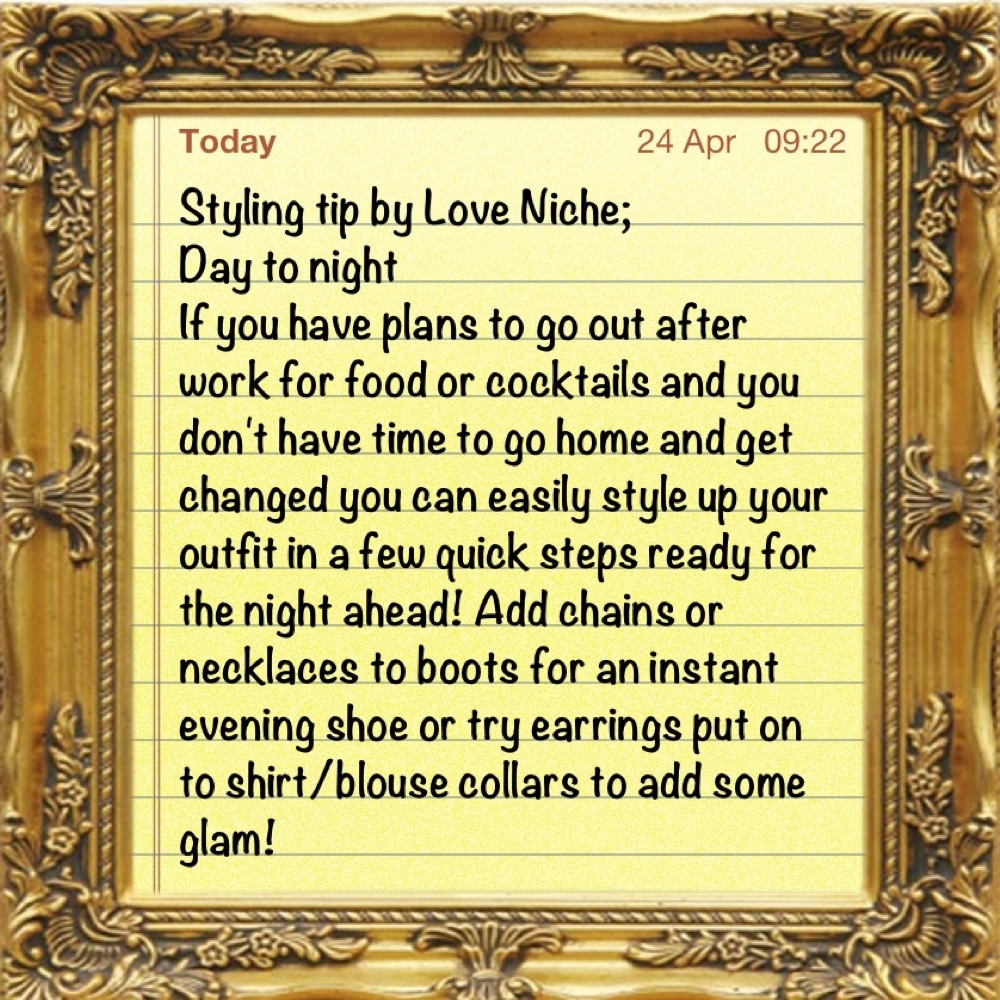 Today 24 Apr 09:22
Styling tip by Love Niche;
Day to night
If you have plans to go out after
work for food or cocktails and you
don't have time to go home and get
changed you can easily style up your
outfit in a few quick steps ready for
the night ahead! Add chains or
necklaces to boots for an instant
evening shoe or try earrings put on
to shirt/blouse collars to add some
glam!